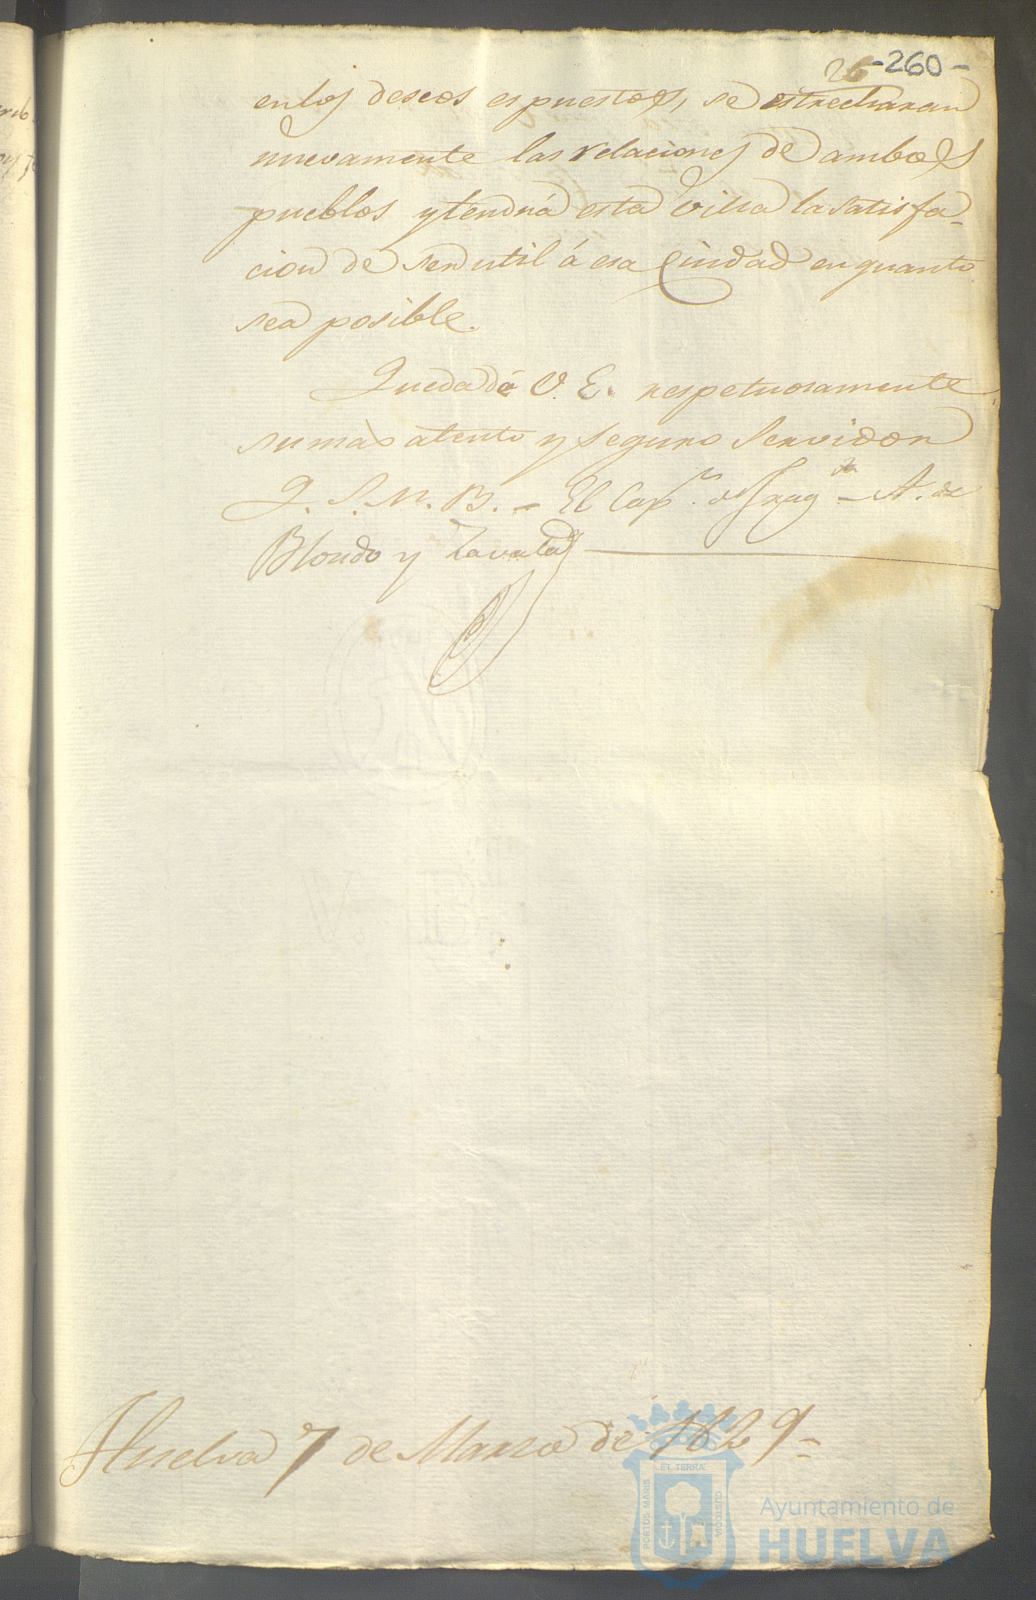 26 -260-
en los deseos espuestos, se estrecharan
nuevamente las relaciones de ambos
pueblos y tendrá esta Villa la satisfa-
cion de ser util á esa Ciudad en quanto
sea posible.
Queda de V. E. respetuosamente
su mas atento y seguro Servidor
Q. S. M. B. - El Capn. de Fragta - A. de
Blondo y Zavala
Huelva 7 de Marzo de 1829-
PORTUS MARIS
ET TERRÆ
Ayuntamiento de
HUELVA